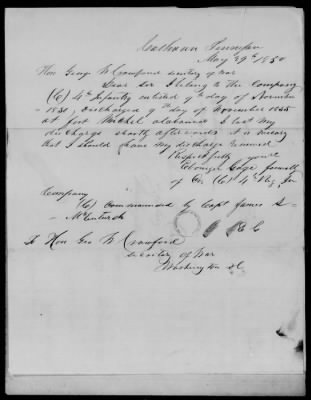 Calhoun Tennessee
May 29th 1850
Hon George W Crawford secretary of War
Dear Sir I belong to the Company
(C) 4th Infantry enlisted 9th day of November
1830, discharged 9th day of November 1835
at fort Mitchel alabama I lost my
discharge shortly afterwards it is necessary
that I should have my discharge renewed
Respectfully yours
Gage formerly
of Co. (C) 4th Reg Inf
Company
(C) commanded by Capt James S
McIntosh
To Hon Geo W Crawford
secretary of War
Washington DC